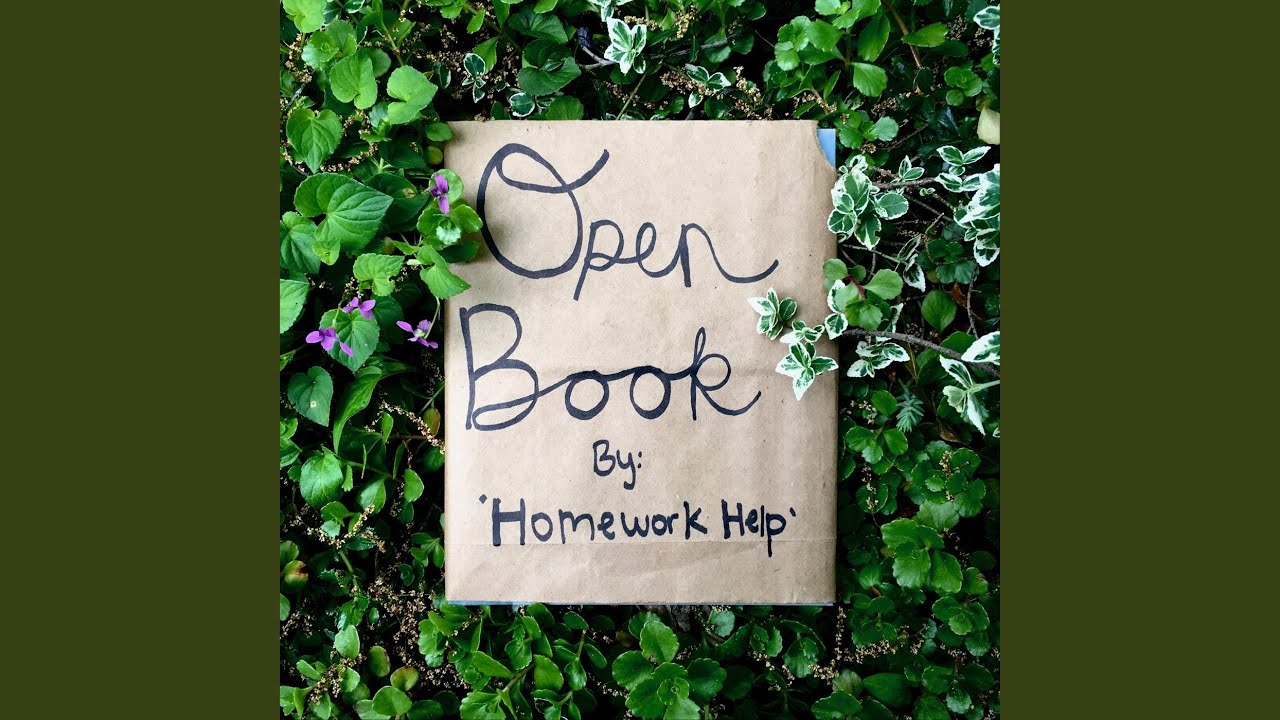 Open
Book
By:
'Homework Help'